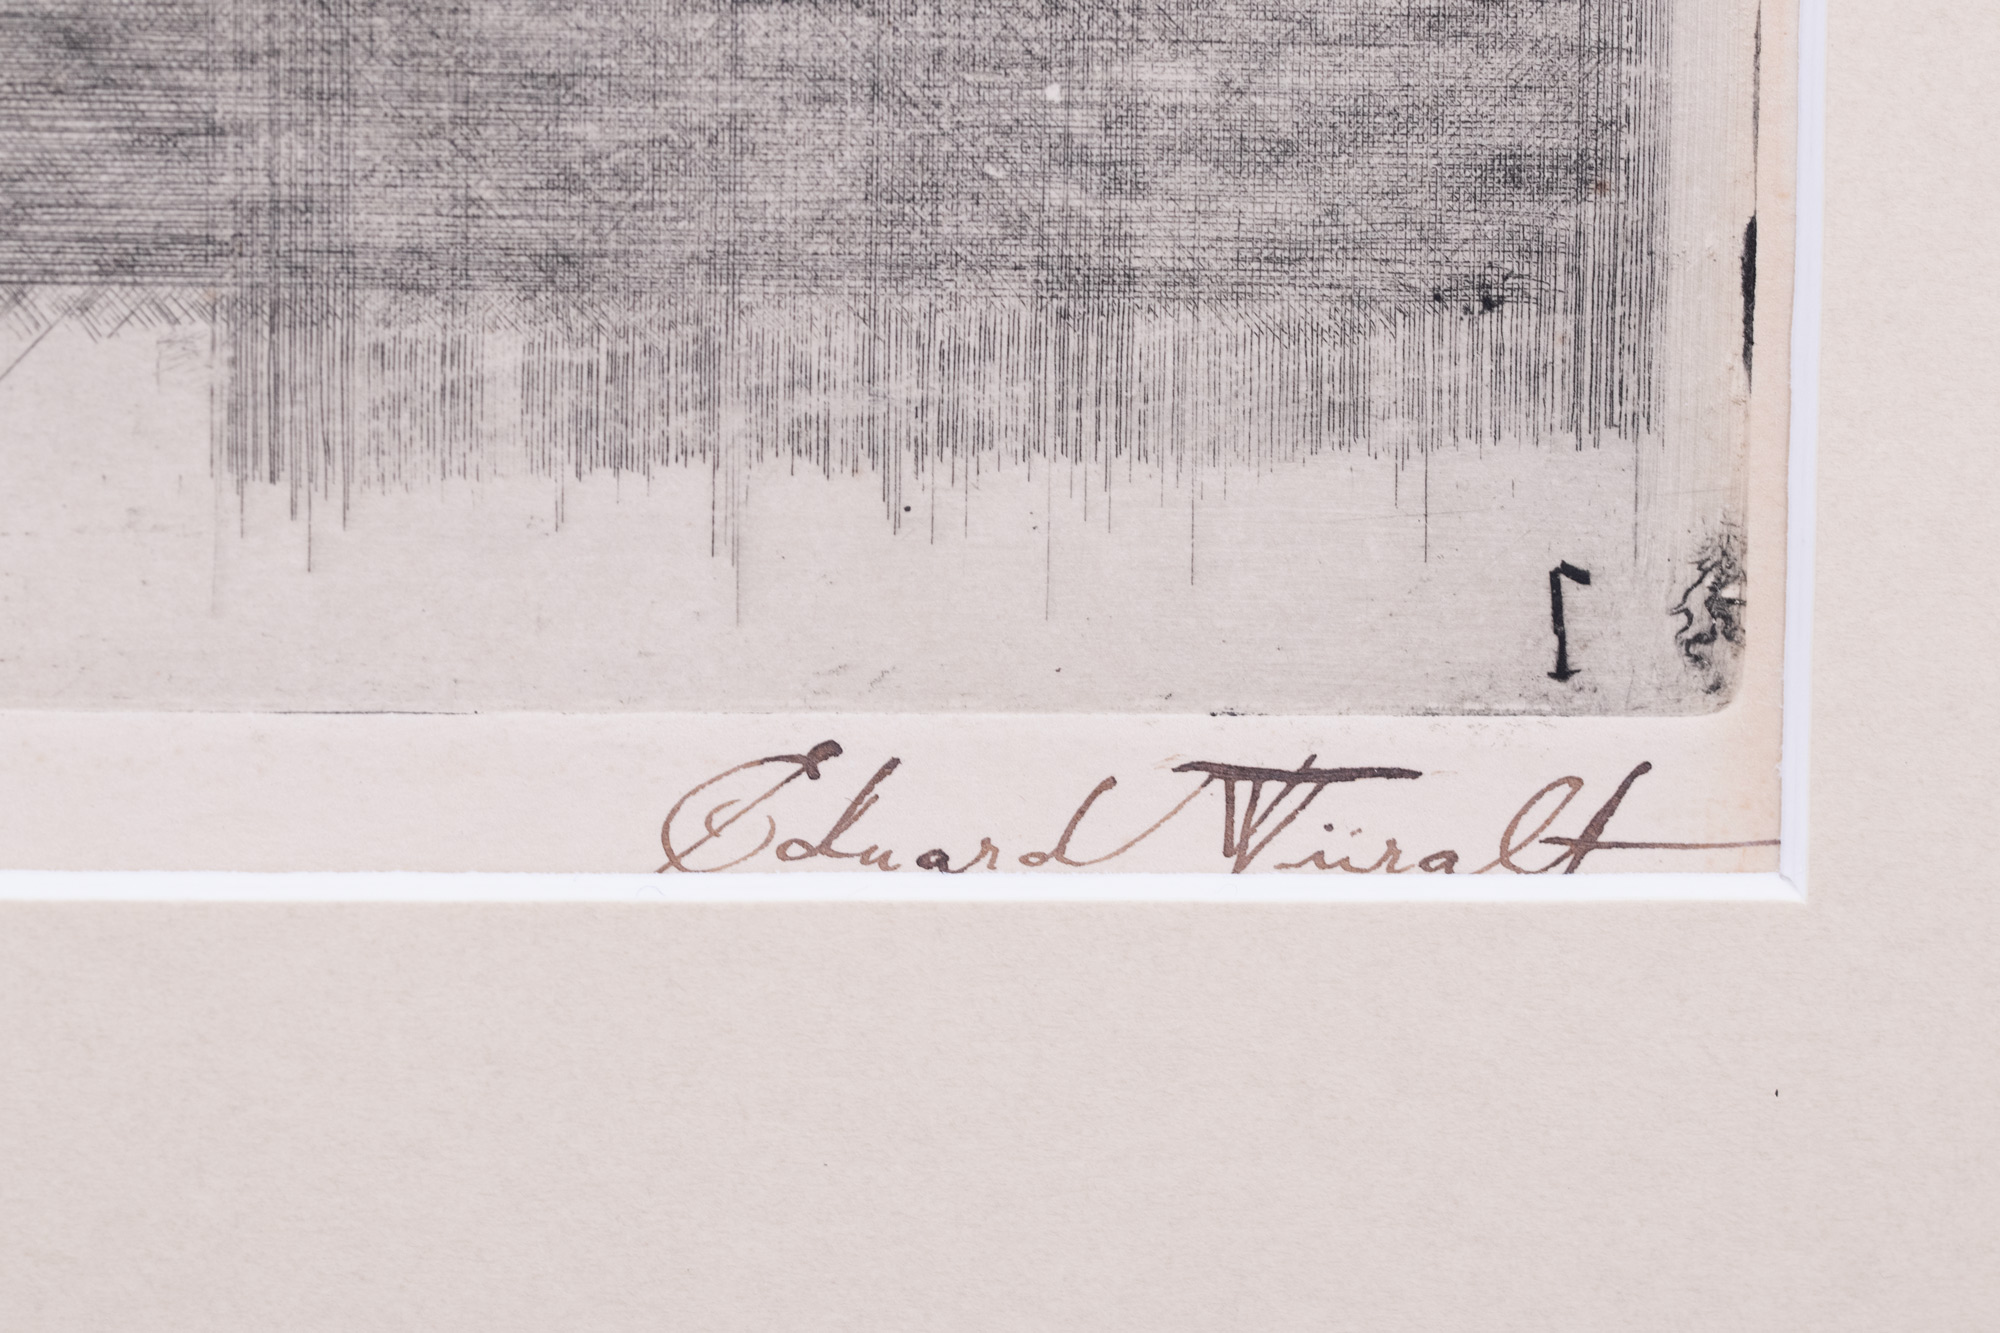 Eduard Wiiralt